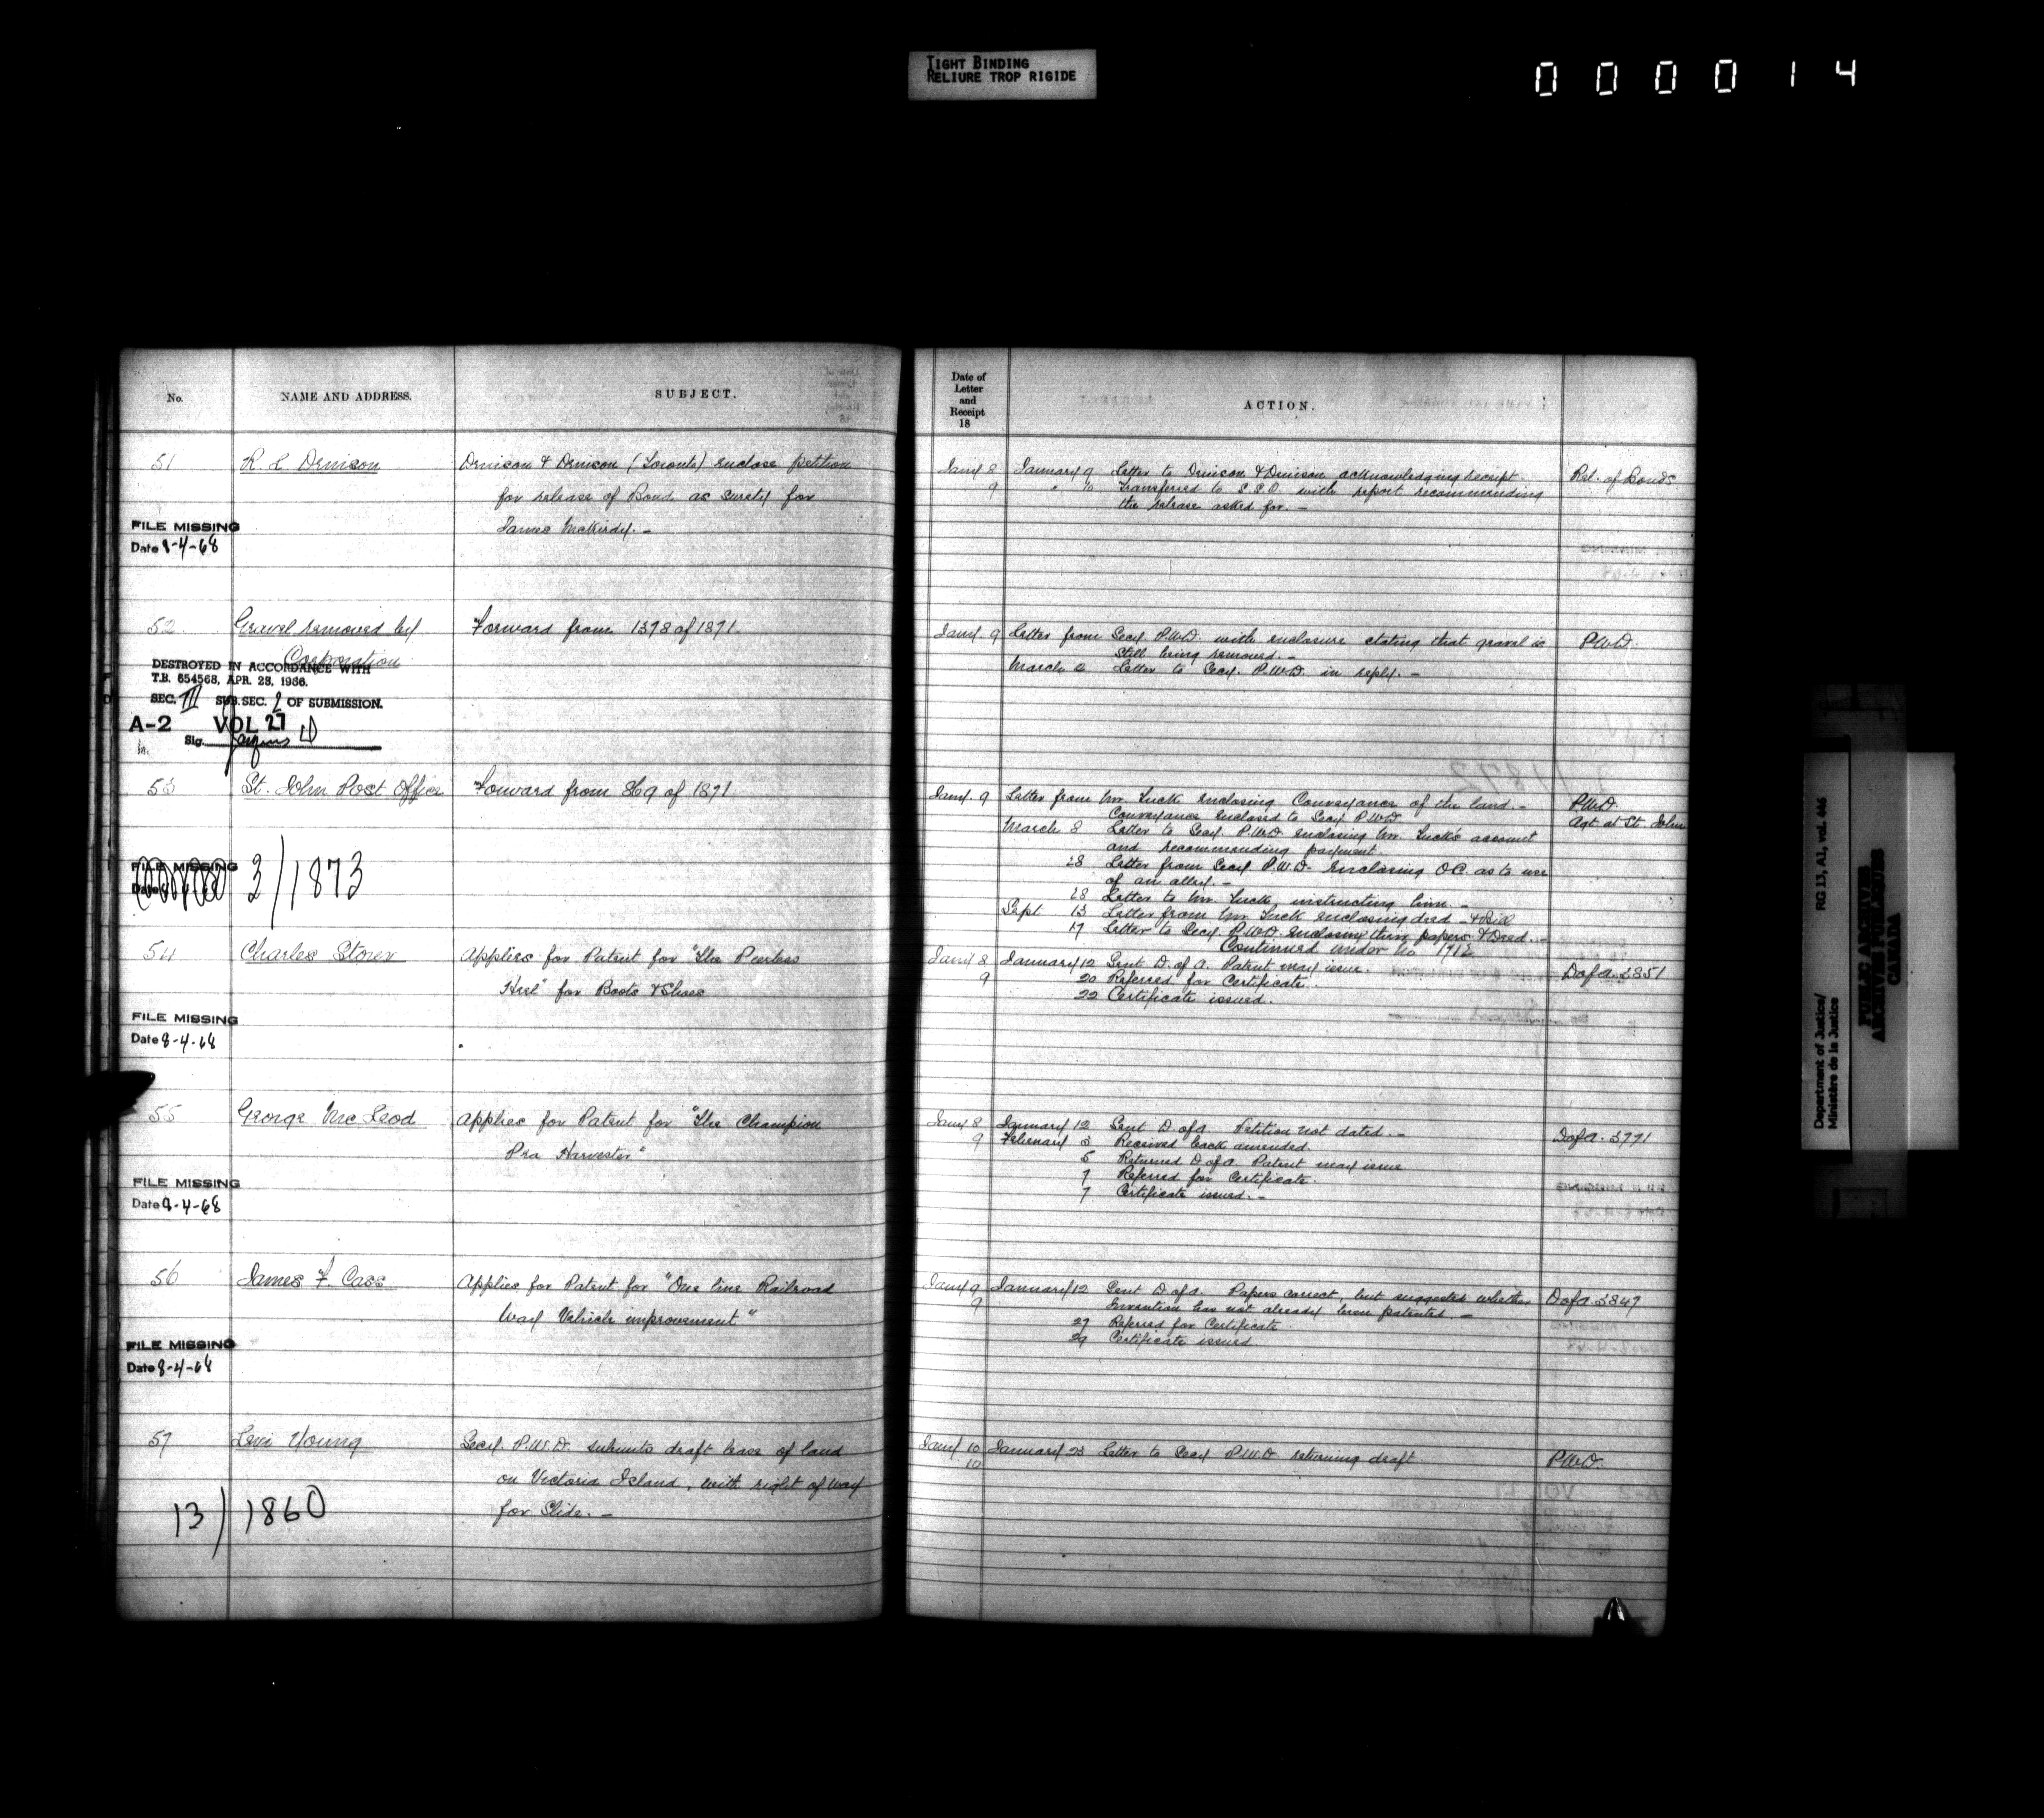 TIGHT BINDING
RELIURE TROP RIGIDE
000014
No.
NAME AND ADDRESS.
SUBJECT.
51
R. L. Denison
Denison & Denison (Toronto) enclose petition
for release of Bond as surety for
James McKirdy. -
FILE MISSING
Date 8-4-68
52
Gravel removed by
Corporation
Forward from 1378 of 1871.
DESTROYED IN ACCORDANCE WITH
T.B. 654568, APR. 28, 1966.
SEC. III SUB. SEC. 2 OF SUBMISSION.
A-2 VOL 27
Sig.
53
St. John Post Office
Forward from 869 of 1871
FILE MISSING
Date
3/1873
54
Charles Storer
Applies for Patent for "The Peerless
Heel" for Boots & Shoes
FILE MISSING
Date 8-4-68
55
George McLeod
Applies for Patent for "The Champion
Pea Harvester"
FILE MISSING
Date 8-4-68
56
James F. Cass
Applies for Patent for "One line Railroad
Way Vehicle improvement"
FILE MISSING
Date 8-4-68
57
Levi Young
Secy. P.W.D. submits draft lease of land
on Victoria Island, with right of way
for Slide. -
13/1860
Date of
Letter
and
Receipt
18
ACTION.
Jany 8 January 9 Letter to Denison & Denison acknowledging receipt. Rel. of Bonds
9 " 10 Transferred to S.S.P. with report recommending
the release asked for. -
Jany. 9 Letter from Secy. P.W.D. with enclosure stating that gravel is P.W.D.
still being removed. -
March 2 Letter to Secy. P.W.D. in reply. -
Jany. 9 Letter from Mr. Tuck enclosing Conveyance of the land. - P.W.D.
Conveyance enclosed to Secy P.W.D. Agt. at St. John
March 8 Letter to Secy. P.W.D. enclosing Mr. Tuck's account
and recommending payment.
28 Letter from Secy P.W.D. enclosing O.C. as to use
of an alley. -
28 Letter to Mr. Tuck, instructing him. -
Sept 13 Letter from Mr. Tuck enclosing deed -
17 Letter to Secy. P.W.D. enclosing papers & Deed. -
Continued under No
Jany 8 January 12 Sent D. of A. Patent may issue. D of A. 3851
9 20 Referred for Certificate.
22 Certificate issued.
Jany 8 January 12 Sent D. of A. Petition not dated. - D of A. 3771
9 February 3 Received back amended.
5 Returned D. of A. Patent may issue
7 Referred for Certificate.
7 Certificate issued. -
Jany 9 January 12 Sent D. of A. Papers correct, but suggested whether D of A 3847
9 Invention has not already been patented. -
27 Referred for Certificate
29 Certificate issued.
Jany 10 January 23 Letter to Secy P.W.D. returning draft P.W.D.
10
Department of Justice/ RG 13, A1, vol. 446
Ministère de la Justice
PUBLIC ARCHIVES
ARCHIVES PUBLIQUES
CANADA